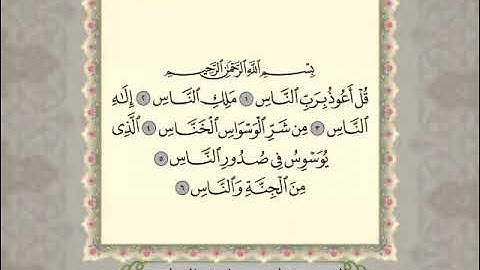 بِسْمِ اللَّهِ الرَّحْمَٰنِ الرَّحِيمِ
قُلْ أَعُوذُ بِرَبِّ النَّاسِ ١ مَلِكِ النَّاسِ ٢ إِلَٰهِ
النَّاسِ ٣ مِن شَرِّ الْوَسْوَاسِ الْخَنَّاسِ ٤ الَّذِي
يُوَسْوِسُ فِي صُدُورِ النَّاسِ ٥
مِنَ الْجِنَّةِ وَالنَّاسِ ٦